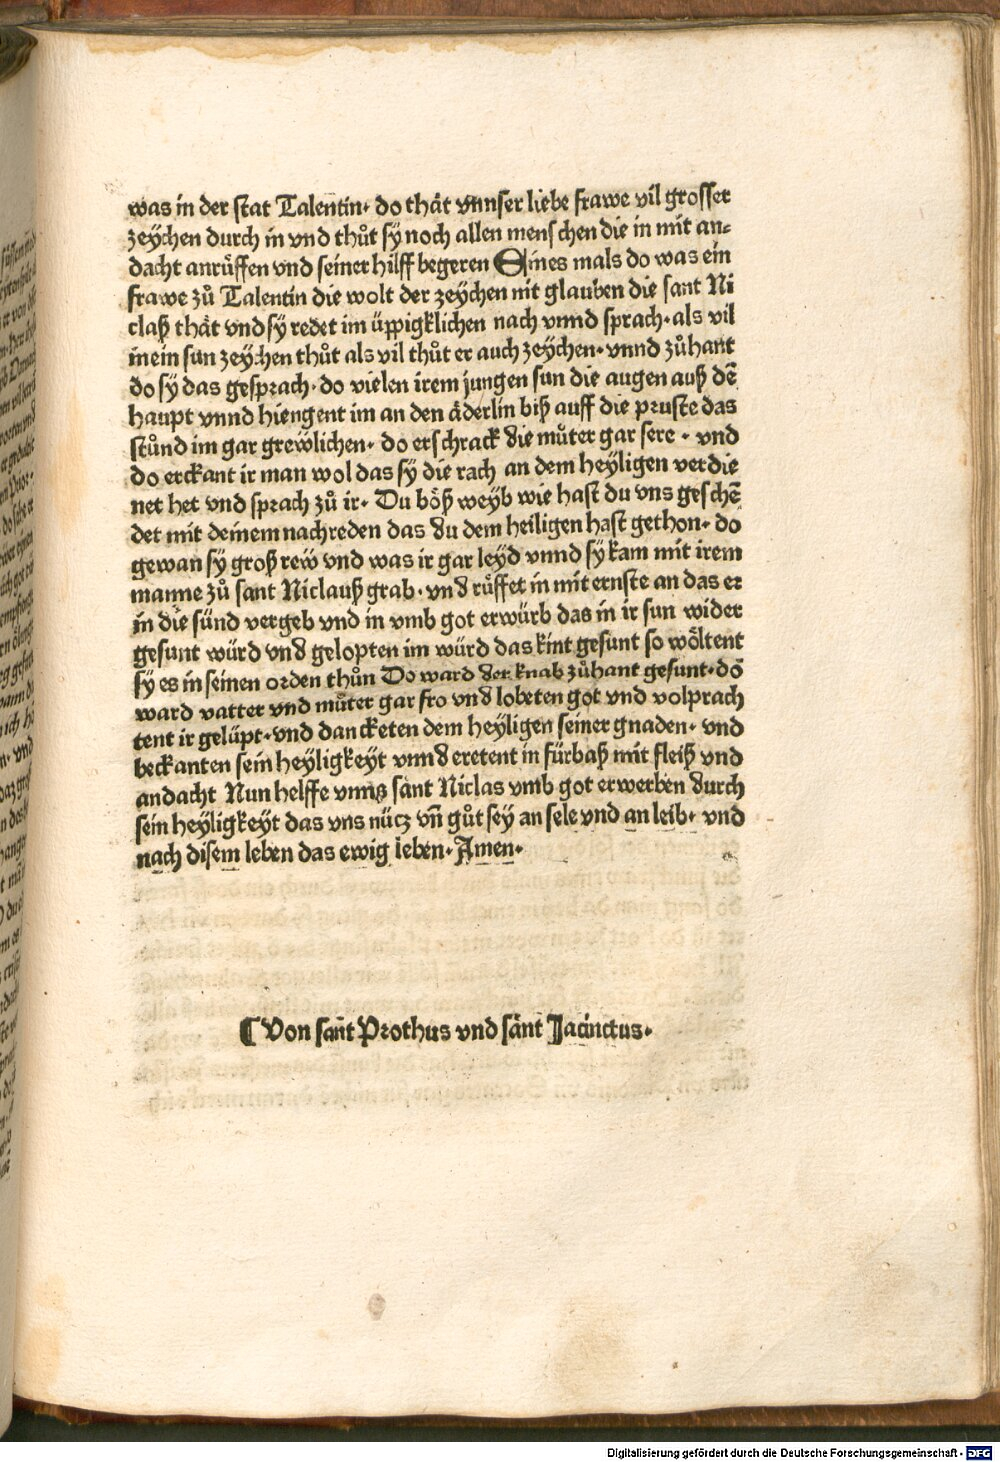 was in der stat Talentin· do thät vnnser liebe frawe vil grosser
zeychen durch in vnd thůt sÿ noch allen menschen die in mit an⸗
dacht anrüffen vnd seiner hilff begeren Eines mals do was ein
frawe zů Talentin die wolt der zeÿchen nit glauben die sant Ni
claß thät vnd sÿ redet im üppigklichen nach vnnd sprach· als vil
mein sun zeÿchen thůt als vil thůt er auch zeÿchen· vnnd zůhant
do sÿ das gesprach· do vielen irem jungen sun die augen auß dē
haupt vnnd hiengent im an den äderlin biß auff die pruste das
stůnd im gar grewlichen· do erschrack die můter gar sere · vnd
do erckant ir man wol das sÿ die rach an dem heÿligen verdie
net het vnd sprach zů ir· Du böß weÿb wie hast du vns geschē
det mit deinem nachreden das du dem heiligen hast gethon· do
gewan sÿ groß rew vnd was ir gar leÿd vnnd sÿ kam mit irem
manne zů sant Niclauß grab· vnd růffet in mit ernste an das er
in die sünd vergeb vnd in vmb got erwürb das in ir sun wider
gesunt würd vnd gelopten im würd das kint gesunt so wöltent
sÿ es in seinen orden thůn Do ward der knab zůhant gesunt· dō
ward vatter vnd můter gar fro vnd lobeten got vnd volprach
tent ir gelüpt· vnd danckten dem heÿligen seiner gnaden· vnd
beckanten sein heÿligkeÿt vnnd eretent in fürbaß mit fleiß vnd
andacht Nun helffe vnns sant Niclas vmb got erwerben durch
sein heÿligkeÿt das vns nücz vn̄ gůt seÿ an sele vnd an leib· vnd
nach disem leben das ewig leben· Amen·
¶ Von sant Prothus vnd sant Jacinctus·
Digitalisierung gefördert durch die Deutsche Forschungsgemeinschaft - DFG